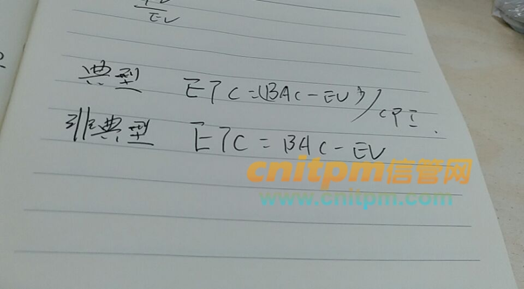 EV
典型 ETC=(BAC-EV)/CPI.
非典型 ETC=BAC-EV
cnitpm信管网
www.cnitpm.com